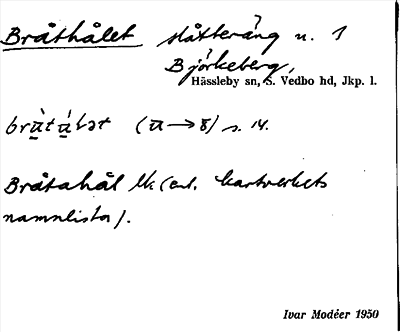 Bråthålet slåtteräng n. 1
Björkeberg,
Hässleby sn, S. Vedbo hd, Jkp. l.
s. 14.
Bråtahål lk (enl. kartverkets
namnlistor).
Ivar Modéer 1950